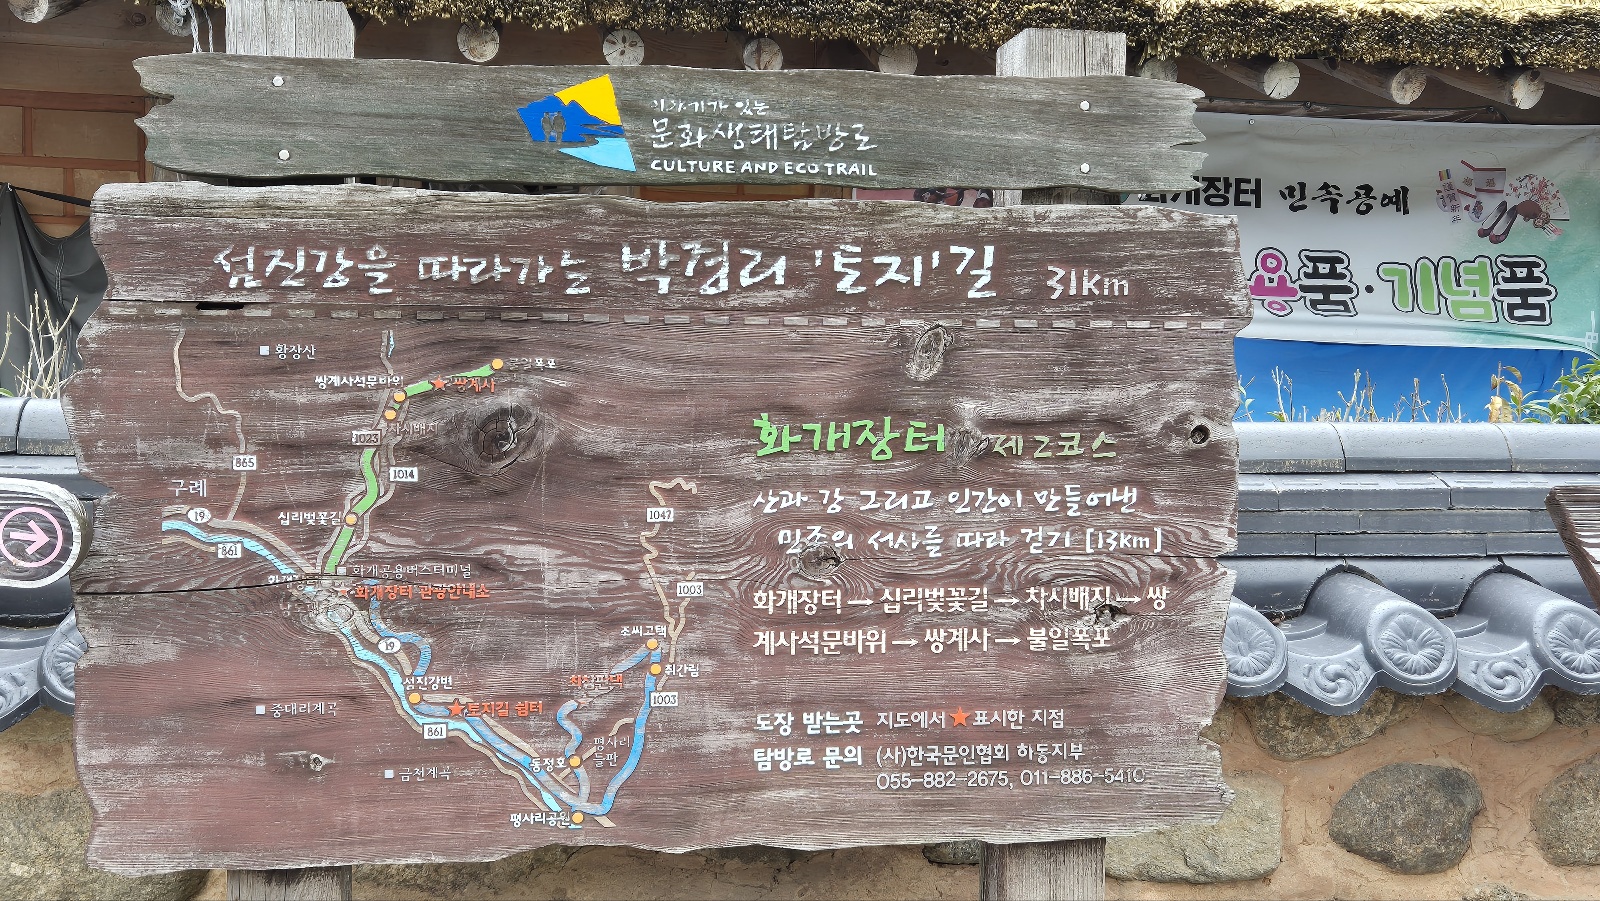 이야기가 있는
문화생태탐방로
CULTURE AND ECO TRAIL
섬진강을 따라가는 박경리 '토지'길 31km
황장산
쌍계사석문바위
쌍계사
불일폭포
차시배지
1023
1014
865
구례
19
861
십리벚꽃길
화개공용버스터미널
화개장터 관광안내소
19
섬진강변
토지길 쉼터
중대리계곡
861
금천계곡
동정호
평사리
들판
평사리공원
1047
1003
조씨고택
취간림
최참판댁
1003
화개장터 제2코스
산과 강 그리고 인간이 만들어낸
민족의 서사를 따라 걷기 [13km]
화개장터 → 십리벚꽃길 → 차시배지 → 쌍
계사석문바위 → 쌍계사 → 불일폭포
도장 받는곳 지도에서 ★표시한 지점
탐방로 문의 (사)한국문인협회 하동지부
055-882-2675, 011-886-5410
화개장터 민속공예
용품·기념품